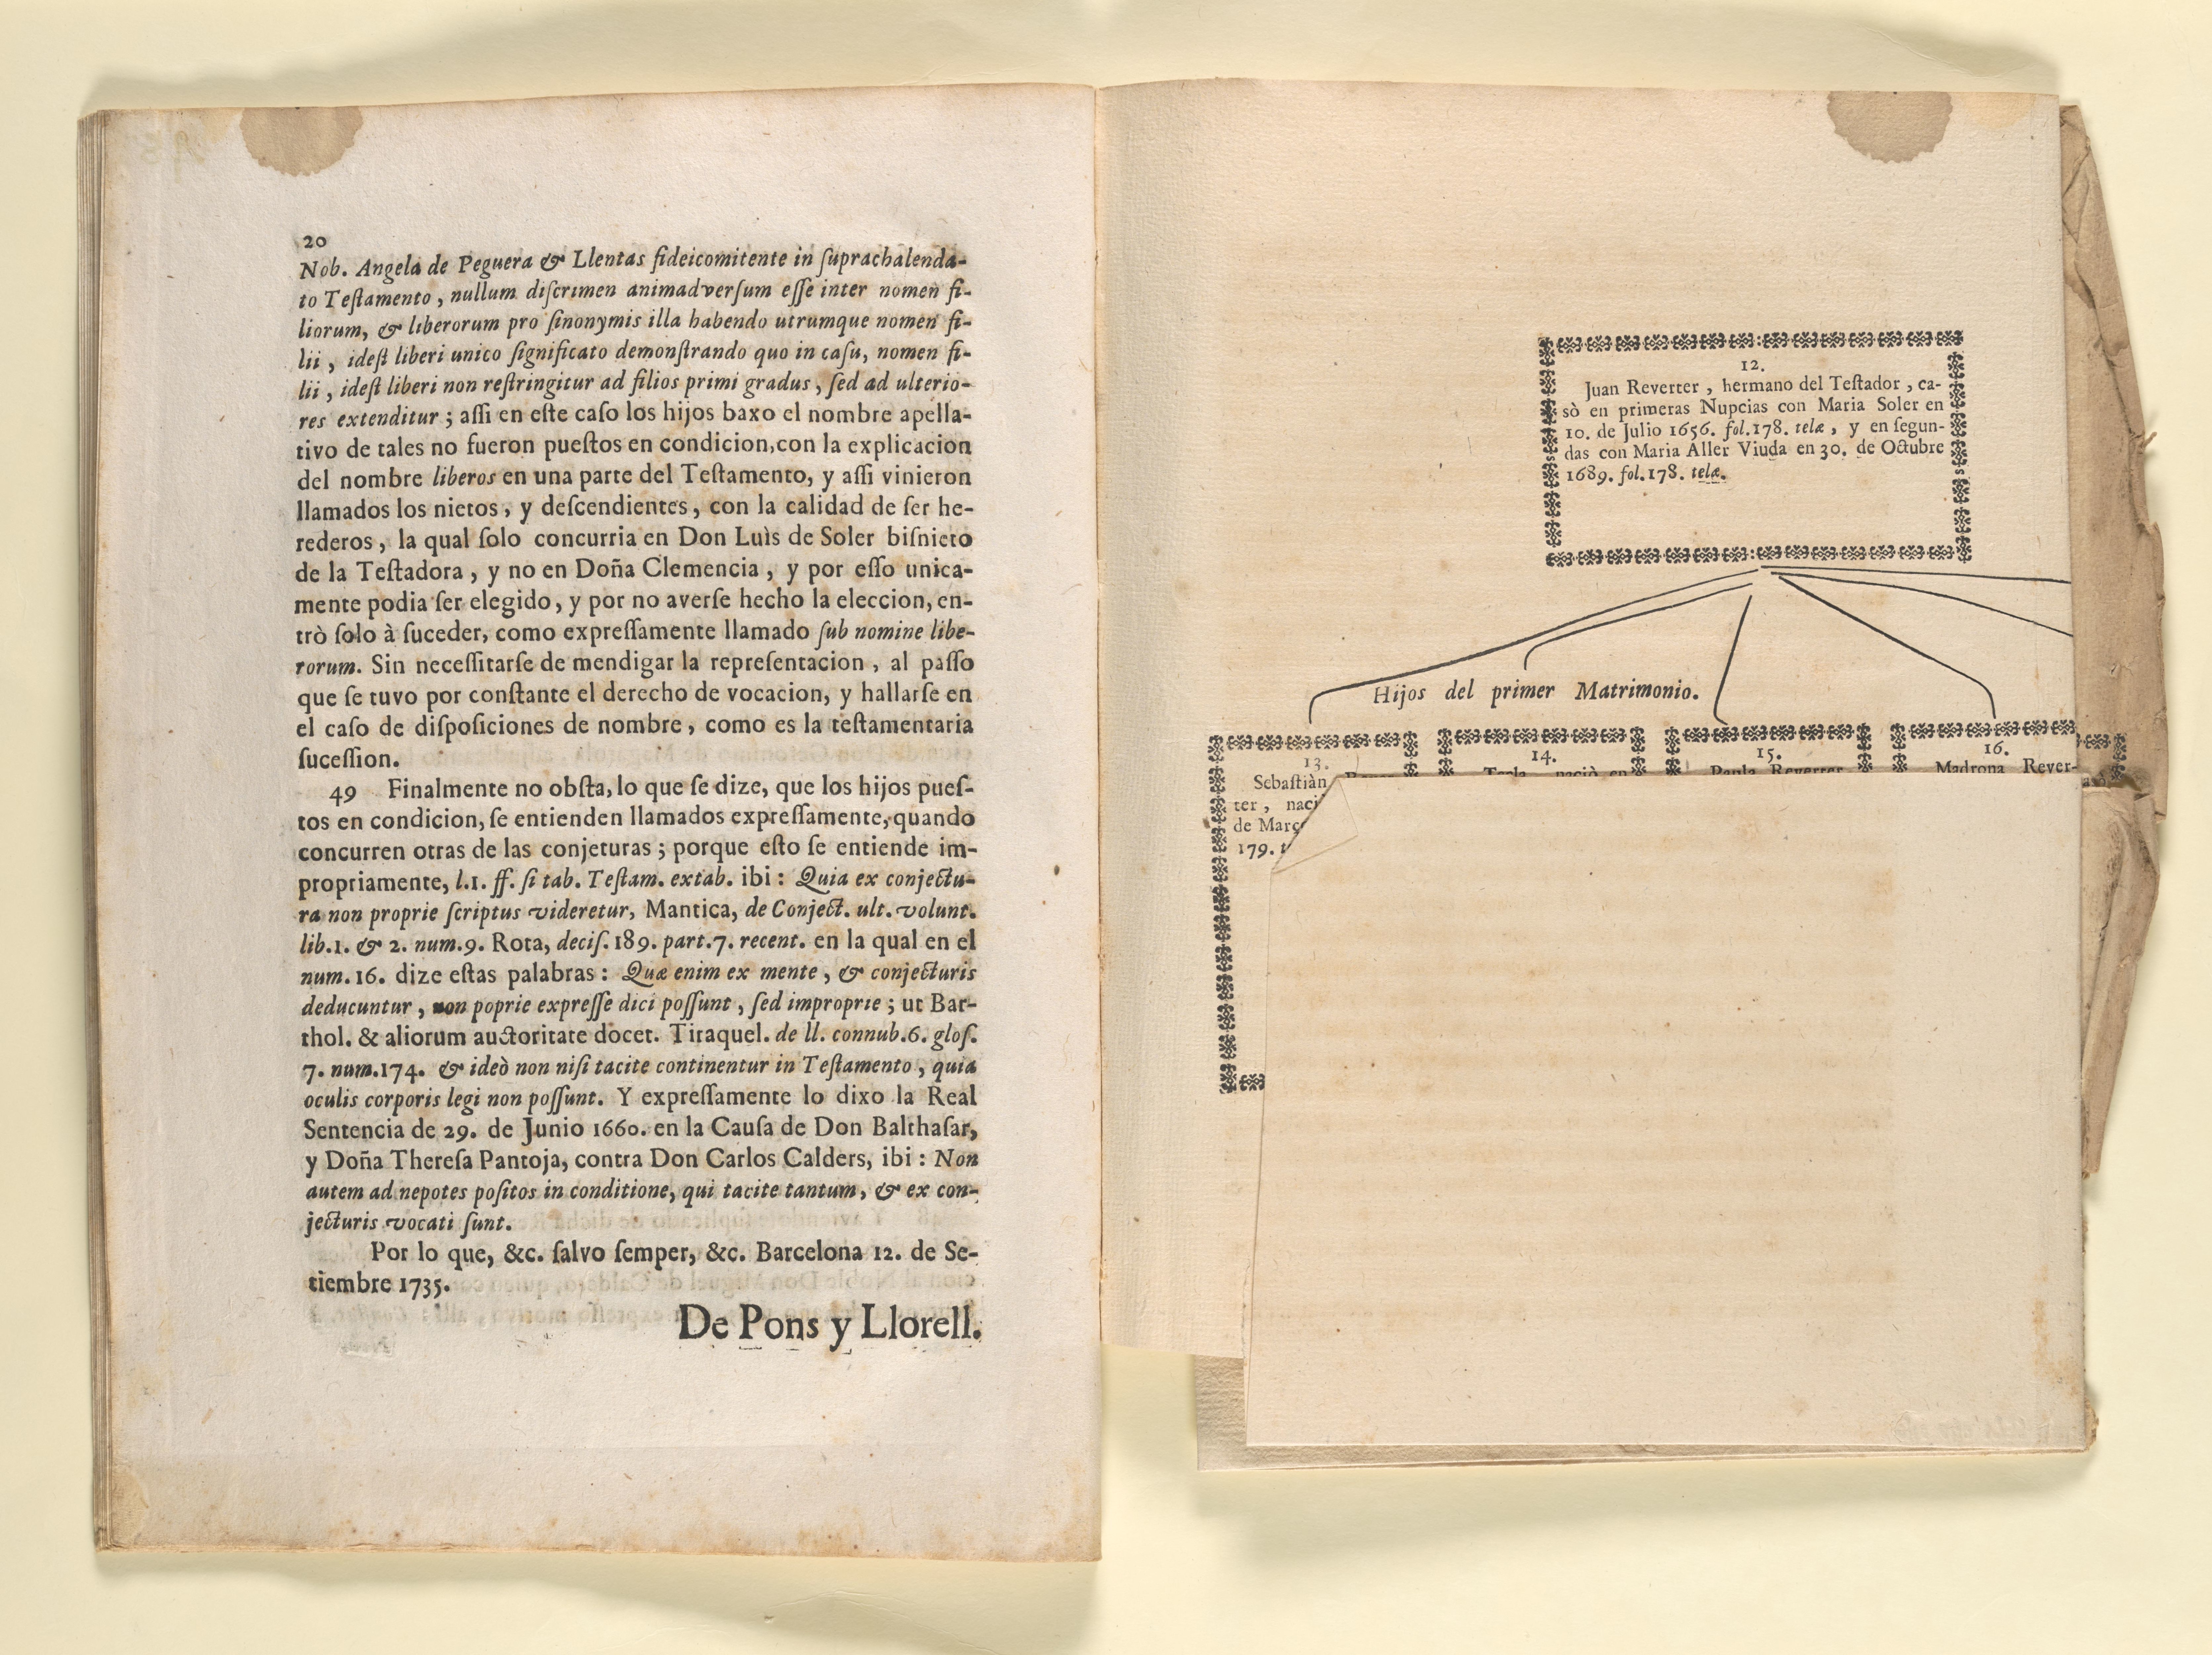 20
Nob. Angela de Peguera & Llentas fideicomitente in ſuprachalenda-
to Teſtamento, nullum diſcrimen animadverſum eſſe inter nomen fi-
liorum, & liberorum pro ſinonymis illa habendo utrumque nomen fi-
lii, ideſt liberi unico ſignificato demonſtrando quo in caſu, nomen fi-
lii, ideſt liberi non reſtringitur ad filios primi gradus, ſed ad ulterio-
res extenditur; aſſi en eſte caſo los hijos baxo el nombre apella-
tivo de tales no fueron pueſtos en condicion, con la explicacion
del nombre liberos en una parte del Teſtamento, y aſſi vinieron
llamados los nietos, y deſcendientes, con la calidad de ſer he-
rederos, la qual ſolo concurria en Don Luìs de Soler biſnieto
de la Teſtadora, y no en Doña Clemencia, y por eſſo unica-
mente podia ſer elegido, y por no averſe hecho la eleccion, en-
trò ſolo à ſuceder, como expreſſamente llamado ſub nomine libe-
rorum. Sin neceſſitarſe de mendigar la repreſentacion, al paſſo
que ſe tuvo por conſtante el derecho de vocacion, y hallarſe en
el caſo de diſpoſiciones de nombre, como es la teſtamentaria
ſuceſſion.
49 Finalmente no obſta, lo que ſe dize, que los hijos pueſ-
tos en condicion, ſe entienden llamados expreſſamente, quando
concurren otras de las conjeturas; porque eſto ſe entiende im-
propriamente, l.1. ff. ſi tab. Teſtam. extab. ibi: Quia ex conjectu-
ra non proprie ſcriptus videretur, Mantica, de Conject. ult. volunt.
lib.1. & 2. num.9. Rota, deciſ. 189. part.7. recent. en la qual en el
num. 16. dize eſtas palabras: Quæ enim ex mente, & conjecturis
deducuntur, non poprie expreſſe dici poſſunt, ſed improprie; ut Bar-
thol. & aliorum auctoritate docet. Tiraquel. de ll. connub.6. gloſ.
7. num.174. & ideò non niſi tacite continentur in Teſtamento, quia
oculis corporis legi non poſſunt. Y expreſſamente lo dixo la Real
Sentencia de 29. de Junio 1660. en la Cauſa de Don Balthaſar,
y Doña Thereſa Pantoja, contra Don Carlos Calders, ibi: Non
autem ad nepotes poſitos in conditione, qui tacite tantum, & ex con-
jecturis vocati ſunt.
Por lo que, &c. ſalvo ſemper, &c. Barcelona 12. de Se-
tiembre 1735.
De Pons y Llorell.
12.
Juan Reverter, hermano del Teſtador, ca-
sò en primeras Nupcias con Maria Soler en
10. de Julio 1656. fol.178. telæ, y en ſegun-
das con Maria Aller Viuda en 30. de Octubre
1689. fol.178. telæ.
Hijos del primer Matrimonio.
13.
Sebaſtiàn
ter, naci
de Março
179.
14.
Tecla naciò en
15.
Paula Reverter
16.
Madrona Rever-